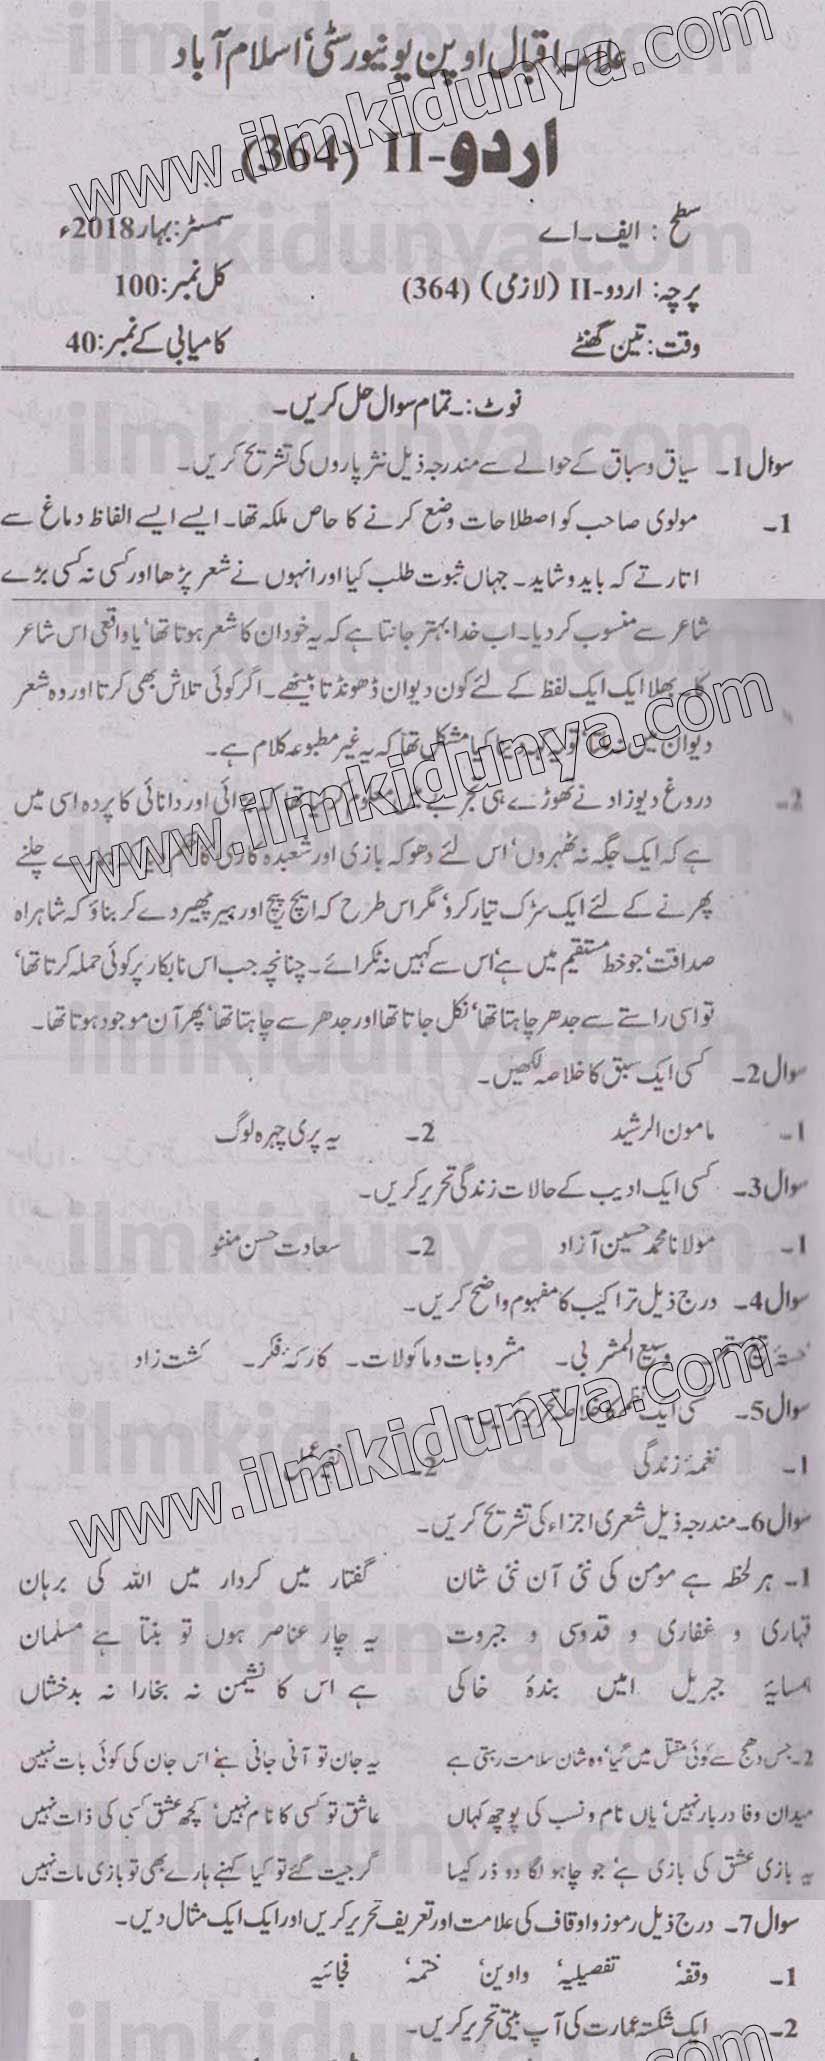 علامہ اقبال اوپن یونیورسٹی، اسلام آباد
اردو-II (364)
سطح: ایف۔اے سمسٹر: بہار 2018ء
پرچہ: اردو-II (لازمی) (364) کل نمبر: 100
وقت: تین گھنٹے کامیابی کے نمبر: 40
نوٹ:۔ تمام سوال حل کریں۔
سوال 1۔ سیاق و سباق کے حوالے سے مندرجہ ذیل نثر پاروں کی تشریح کریں۔
1۔ مولوی صاحب کو اصطلاحات وضع کرنے کا خاص ملکہ تھا۔ ایسے ایسے الفاظ دماغ سے
اتارتے کہ باید و شاید۔ جہاں ثبوت طلب کیا اور انہوں نے شعر پڑھا اور کسی نہ کسی بڑے
شاعر سے منسوب کر دیا۔ اب خدا بہتر جانتا ہے کہ یہ خود ان کا شعر ہوتا تھا، یا واقعی اس شاعر
کا۔ بھلا ایک ایک لفظ کے لئے کون دیوان ڈھونڈتا بیٹھے۔ اگر کوئی تلاش بھی کرتا اور وہ شعر
دیوان میں نہ ملتا، تو یہ کہہ دینا کیا مشکل تھا کہ یہ غیر مطبوعہ کلام ہے۔
2۔ دروغ دیوزاد نے تھوڑے ہی تجربے میں معلوم کر لیا تھا کہ بڑائی اور دانائی کا پردہ اسی میں
ہے کہ ایک جگہ نہ ٹھہروں، اس لئے دھوکہ بازی اور شعبدہ کاری کو حکم دیا کہ ہمارے چلنے
پھرنے کے لئے ایک سڑک تیار کرو، مگر اس طرح کہ ایچ پیچ اور ہیر پھیر دے کر بناؤ کہ شاہراہ
صداقت، جو خط مستقیم میں ہے، اس سے کہیں نہ ٹکرائے۔ چنانچہ جب اس نابکار پر کوئی حملہ کرتا تھا،
تو اسی راستے سے جدھر چاہتا تھا، نکل جاتا تھا اور جدھر سے چاہتا تھا، پھر آن موجود ہوتا تھا۔
سوال 2۔ کسی ایک سبق کا خلاصہ لکھیں۔
1۔ مامون الرشید 2۔ یہ پری چہرہ لوگ
سوال 3۔ کسی ایک ادیب کے حالات زندگی تحریر کریں۔
1۔ مولانا محمد حسین آزاد 2۔ سعادت حسن منٹو
سوال 4۔ درج ذیل تراکیب کا مفہوم واضح کریں۔
خستۂ تیغ ستم۔ وسیع المشربی۔ مشروبات و ماکولات۔ کارگہ فکر۔ کشت زاد
سوال 5۔ کسی ایک نظم کا خلاصہ تحریر کریں۔
1۔ نغمۂ زندگی 2۔ نفیر عمل
سوال 6۔ مندرجہ ذیل شعری اجزاء کی تشریح کریں۔
1۔ ہر لحظہ ہے مومن کی نئی آن نئی شان گفتار میں کردار میں اللہ کی برہان
قہاری و غفاری و قدوسی و جبروت یہ چار عناصر ہوں تو بنتا ہے مسلمان
ہمسایۂ جبریل امیں بندۂ خاکی ہے اس کا نشیمن نہ بخارا نہ بدخشاں
2۔ جس دھج سے کوئی مقتل میں گیا، وہ شان سلامت رہتی ہے یہ جان تو آنی جانی ہے، اس جان کی کوئی بات نہیں
میدان وفا دربار نہیں، یاں نام و نسب کی پوچھ کہاں عاشق تو کسی کا نام نہیں، کچھ عشق کسی کی ذات نہیں
یہ بازی عشق کی بازی ہے، جو چاہو لگا دو ڈر کیسا گر جیت گئے تو کیا کہنے ہارے بھی تو بازی مات نہیں
سوال 7۔ درج ذیل رموز و اوقاف کی علامت اور تعریف تحریر کریں اور ایک ایک مثال دیں۔
1۔ وقفہ، تفصیلیہ، واوین، ختمہ، فجائیہ
2۔ ایک شکستہ عمارت کی آپ بیتی تحریر کریں۔
www.ilmkidunya.com
www.ilmkidunya.com
www.ilmkidunya.com